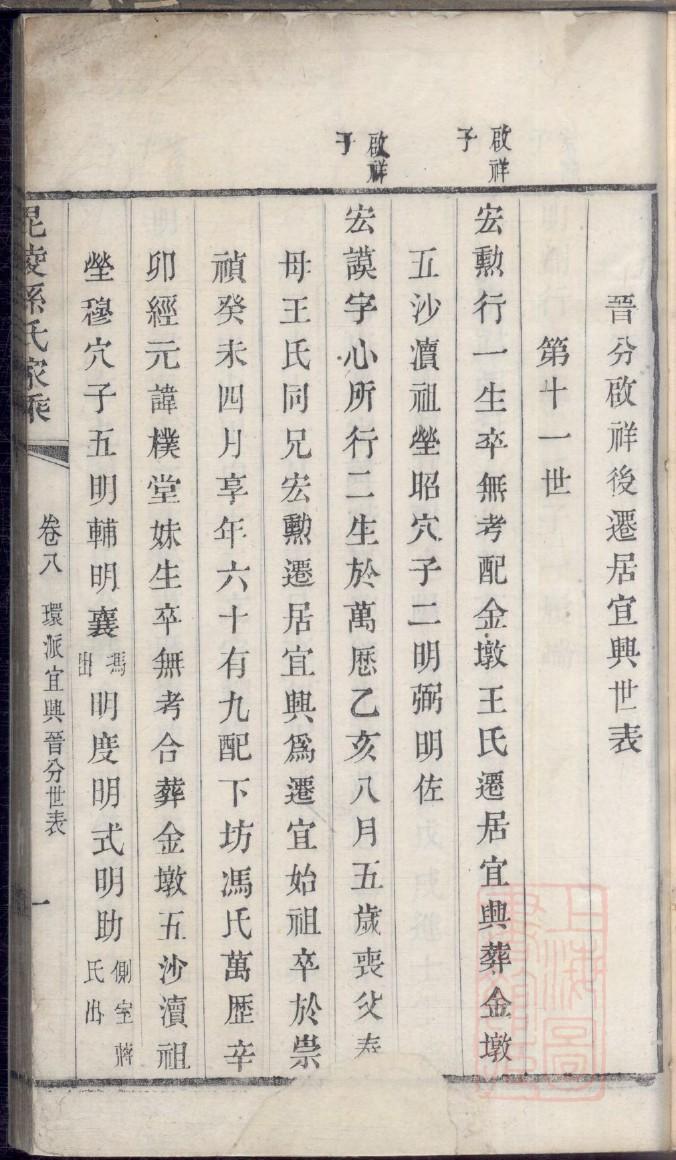 晉分啟祥後遷居宜興世表
第十一世
啟祥
子
宏勲行一生卒無考配金墩王氏遷居宜興葬金墩
五沙瀆祖塋昭穴子二明弼明佐
啟祥
子
宏謨字心所行二生於萬厯乙亥八月五歲喪父奉
母王氏同兄宏勲遷居宜興爲遷宜始祖卒於崇
禎癸未四月享年六十有九配下坊馮氏萬歴辛
卯經元諱樸堂妹生卒無考合葬金墩五沙瀆祖
塋穆穴子五明輔明襄馮出明度明式明助側室蔣氏出
毘陵孫氏家乘
卷八 環派宜興晉分世表 一
上海圖書館藏